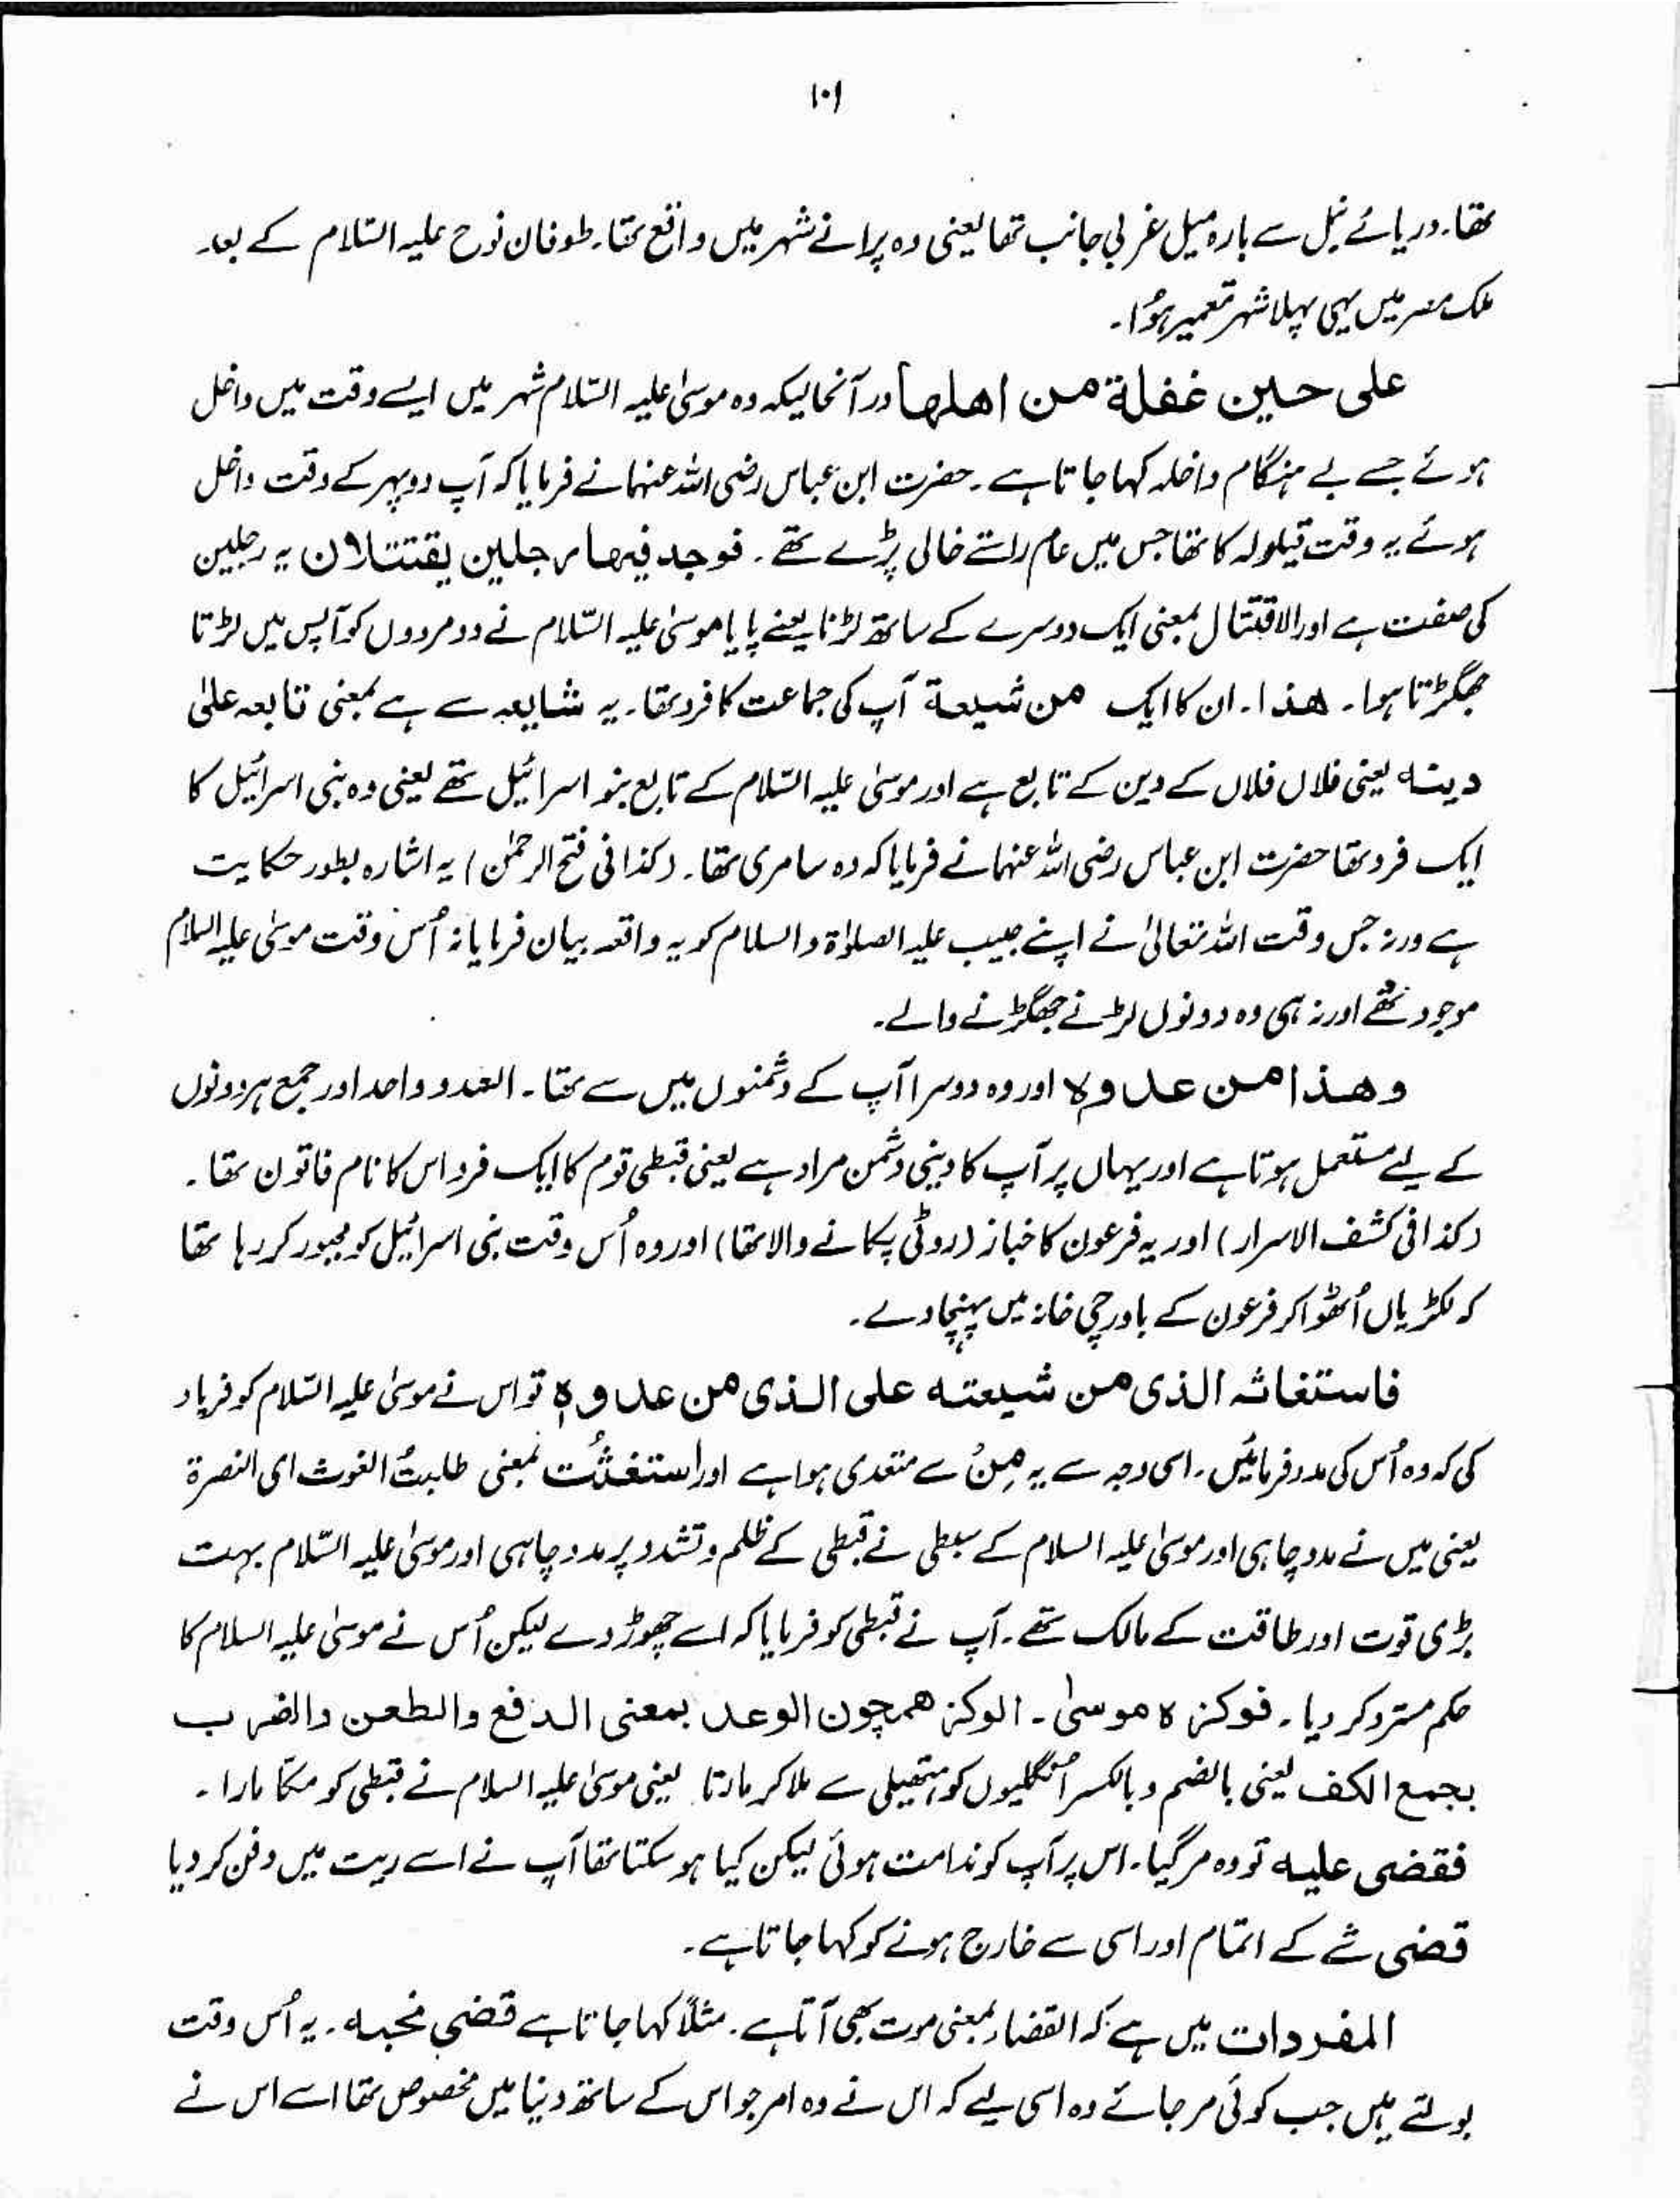 ۱۰۱
تھا۔ دریائے نیل سے بارہ میل غربی جانب تھا یعنی وہ پرانے شہر میں واقع تھا۔ طوفان نوح علیہ السّلام کے بعد
ملک مصر میں یہی پہلا شہر تعمیر ہُوا۔
علی حین غفلة من اھلھا درآنحالیکہ وہ موسیٰ علیہ السّلام شہر میں ایسے وقت میں داخل
ہوئے جسے بے ہنگام داخلہ کہا جاتا ہے۔ حضرت ابن عباس رضی اللہ عنہما نے فرمایا کہ آپ دوپہر کے وقت داخل
ہوئے یہ وقت قیلولہ کا تھا جس میں عام راستے خالی پڑے تھے۔ فوجد فیھا رجلین یقتتلان یہ رجلین
کی صفت ہے اور الاقتتال بمعنی ایک دوسرے کے ساتھ لڑنا یعنے پایا موسیٰ علیہ السّلام نے دو مردوں کو آپس میں لڑتا
جھگڑتا ہوا۔ ھذا۔ ان کا ایک من شیعة آپ کی جماعت کا فرد تھا۔ یہ شایعہ سے ہے بمعنی تابعہ علیٰ
دینہ یعنی فلاں فلاں کے دین کے تابع ہے اور موسیٰ علیہ السّلام کے تابع بنو اسرائیل تھے یعنی وہ بنی اسرائیل کا
ایک فرد تھا حضرت ابن عباس رضی اللہ عنہما نے فرمایا کہ وہ سامری تھا۔ (کذا فی فتح الرحمٰن) یہ اشارہ بطور حکایت
ہے ورنہ جس وقت اللہ تعالیٰ نے اپنے حبیب علیہ الصلوٰۃ والسلام کو یہ واقعہ بیان فرمایا نہ اُس وقت موسیٰ علیہ السلام
موجود تھے اور نہ ہی وہ دونوں لڑنے جھگڑنے والے۔
وھذا من عدوہ اور وہ دوسرا آپ کے دشمنوں میں سے تھا۔ العدو واحد اور جمع ہر دونوں
کے لیے مستعمل ہوتا ہے اور یہاں پر آپ کا دینی دشمن مراد ہے یعنی قبطی قوم کا ایک فرد اس کا نام فاتون تھا۔
(کذا فی کشف الاسرار) اور یہ فرعون کا خباز (روٹی پکانے والا تھا) اور وہ اُس وقت بنی اسرائیل کو مجبور کر رہا تھا
کہ لکڑیاں اُٹھوا کر فرعون کے باورچی خانہ میں پہنچا دے۔
فاستغاثہ الذی من شیعتہ علی الذی من عدوہٖ تو اس نے موسیٰ علیہ السّلام کو فریاد
کی کہ وہ اُس کی مدد فرمائیں۔ اسی وجہ سے یہ مِنْ سے متعدی ہوا ہے اور استغثتُ بمعنی طلبتُ الغوث ای النصرة
یعنی میں نے مدد چاہی اور موسیٰ علیہ السلام کے سبطی نے قبطی کے ظلم و تشدد پر مدد چاہی اور موسیٰ علیہ السّلام بہت
بڑی قوت اور طاقت کے مالک تھے۔ آپ نے قبطی کو فرمایا کہ اسے چھوڑ دے لیکن اُس نے موسیٰ علیہ السلام کا
حکم مسترد کر دیا۔ فوکزہ موسیٰ۔ الوکز ھمچون الوعد بمعنی الدفع والطعن والضرب
بجمع الکف یعنی بالضم و بالکسر اُنگلیوں کو ہتھیلی سے ملا کر مارنا یعنی موسیٰ علیہ السلام نے قبطی کو مکّا مارا۔
فقضی علیہ تو وہ مر گیا۔ اس پر آپ کو ندامت ہوئی لیکن کیا ہو سکتا تھا آپ نے اسے ریت میں دفن کر دیا
قضی شے کے اتمام اور اسی سے خارج ہونے کو کہا جاتا ہے۔
المفردات میں ہے کہ القضاء بمعنی موت بھی آتا ہے۔ مثلاً کہا جاتا ہے قضی نحبہ۔ یہ اُس وقت
بولتے ہیں جب کوئی مر جائے وہ اسی لیے کہ اس نے وہ امر جو اس کے ساتھ دنیا میں مخصوص تھا اسے اس نے